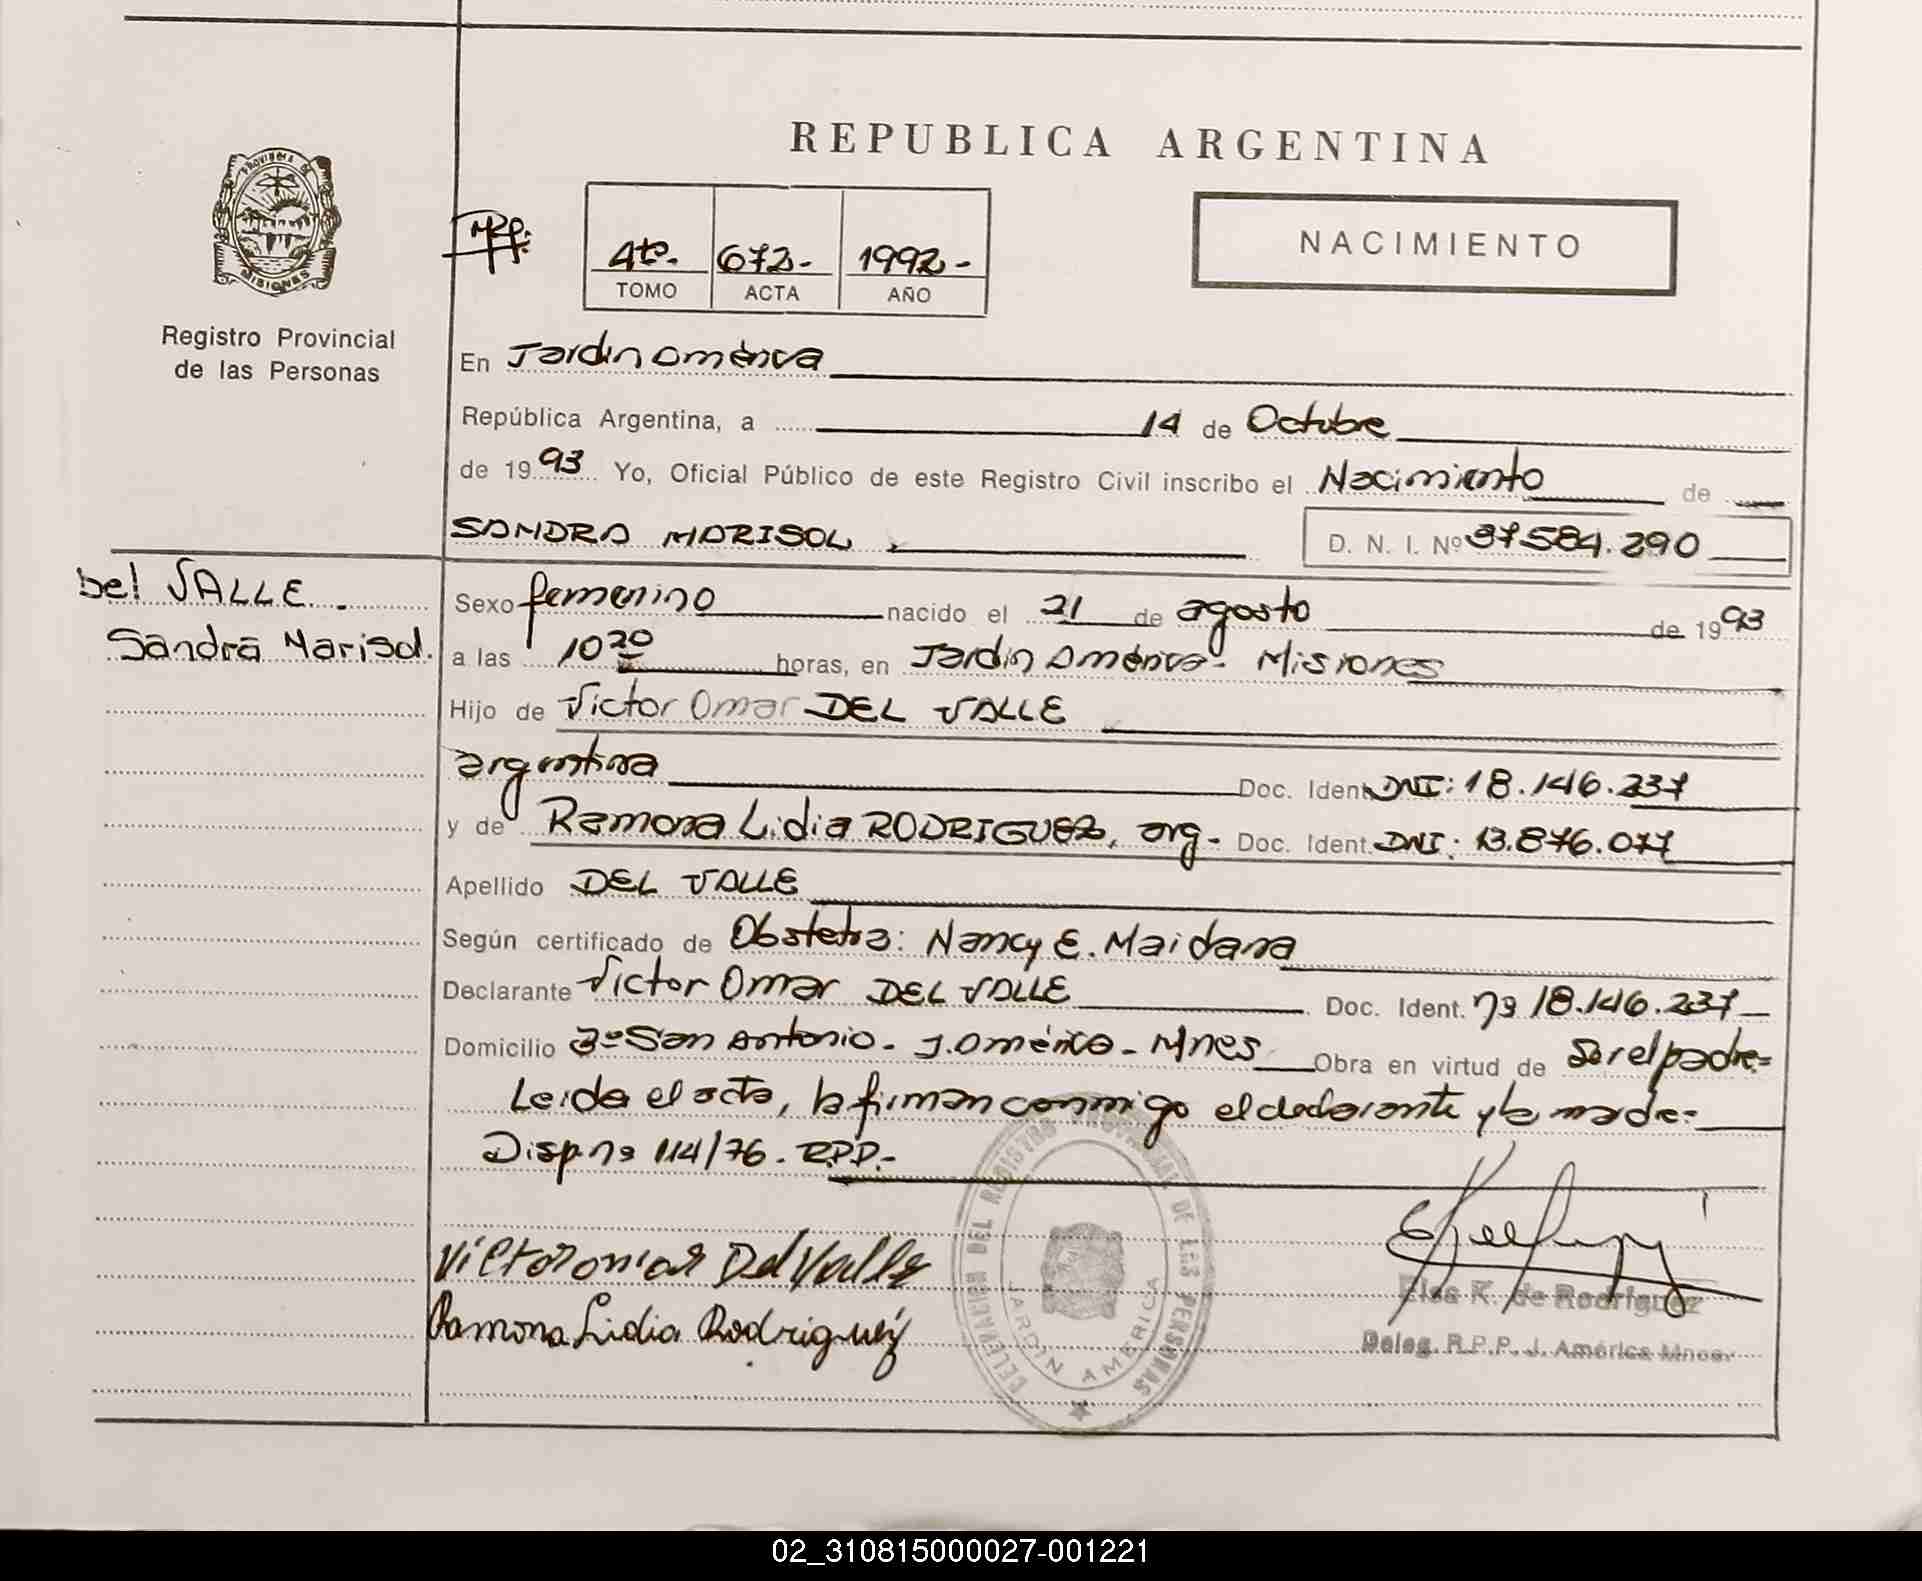 REPUBLICA ARGENTINA
PROVINCIA DE
MISIONES
Registro Provincial
de las Personas
4to. 672- 1992-
TOMO ACTA AÑO
NACIMIENTO
En Jardin América
República Argentina, a 14 de Octubre
de 1993 Yo, Oficial Público de este Registro Civil inscribo el Nacimiento de
SANDRA MARISOL D. N. I. Nº 37584.290
Del VALLE.
Sandra Marisol.
Sexo femenino nacido el 21 de agosto de 1993
a las 10 20 horas, en Jardin América- Misiones
Hijo de Victor Omar DEL VALLE
argentina Doc. Ident. DNI: 18.146.237
y de Ramona Lidia RODRIGUEZ, arg- Doc. Ident. DNI: 13.876.077
Apellido DEL VALLE
Según certificado de Obstetra: Nancy E. Maidana
Declarante Victor Omar DEL VALLE Doc. Ident. nº 18.146.237
Domicilio Bº San Antonio- J. América- Mnes Obra en virtud de Ser el padre=
Leida el acta, la firman conmigo el declarante y la madre=
Disp. nº 114/76. R.P.P.-
Victor omar Del Valle
Ramona Lidia Rodriguez
DELEGACION DEL REGISTRO PROVINCIAL DE LAS PERSONAS
JARDIN AMERICA
Elsa K. de Rodriguez
Deleg. R.P.P. J. América Mnes.
02_310815000027-001221